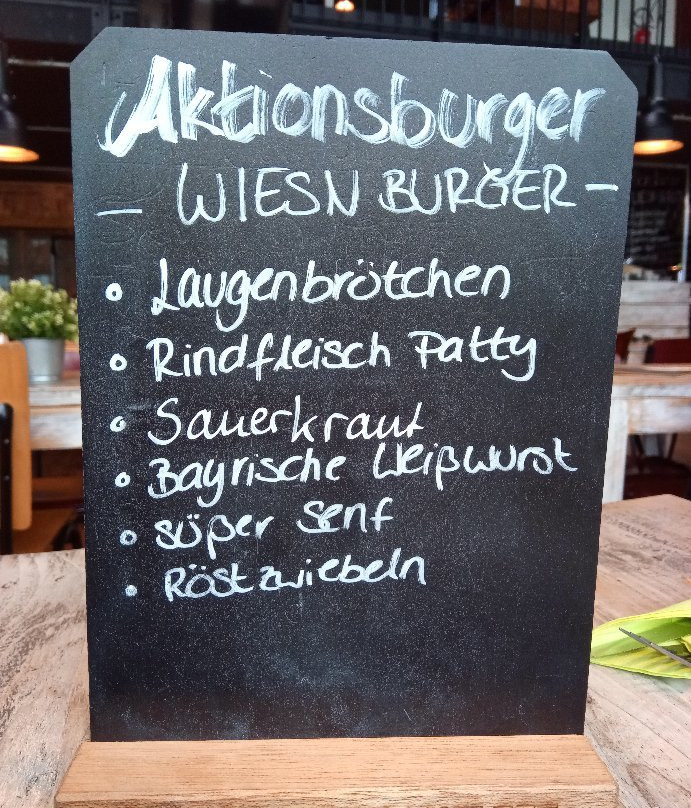 Aktionsburger
- WIESN BURGER -
• Laugenbrötchen
• Rindfleisch Patty
• Sauerkraut
• Bayrische Weißwurst
• süßer Senf
• Röstzwiebeln